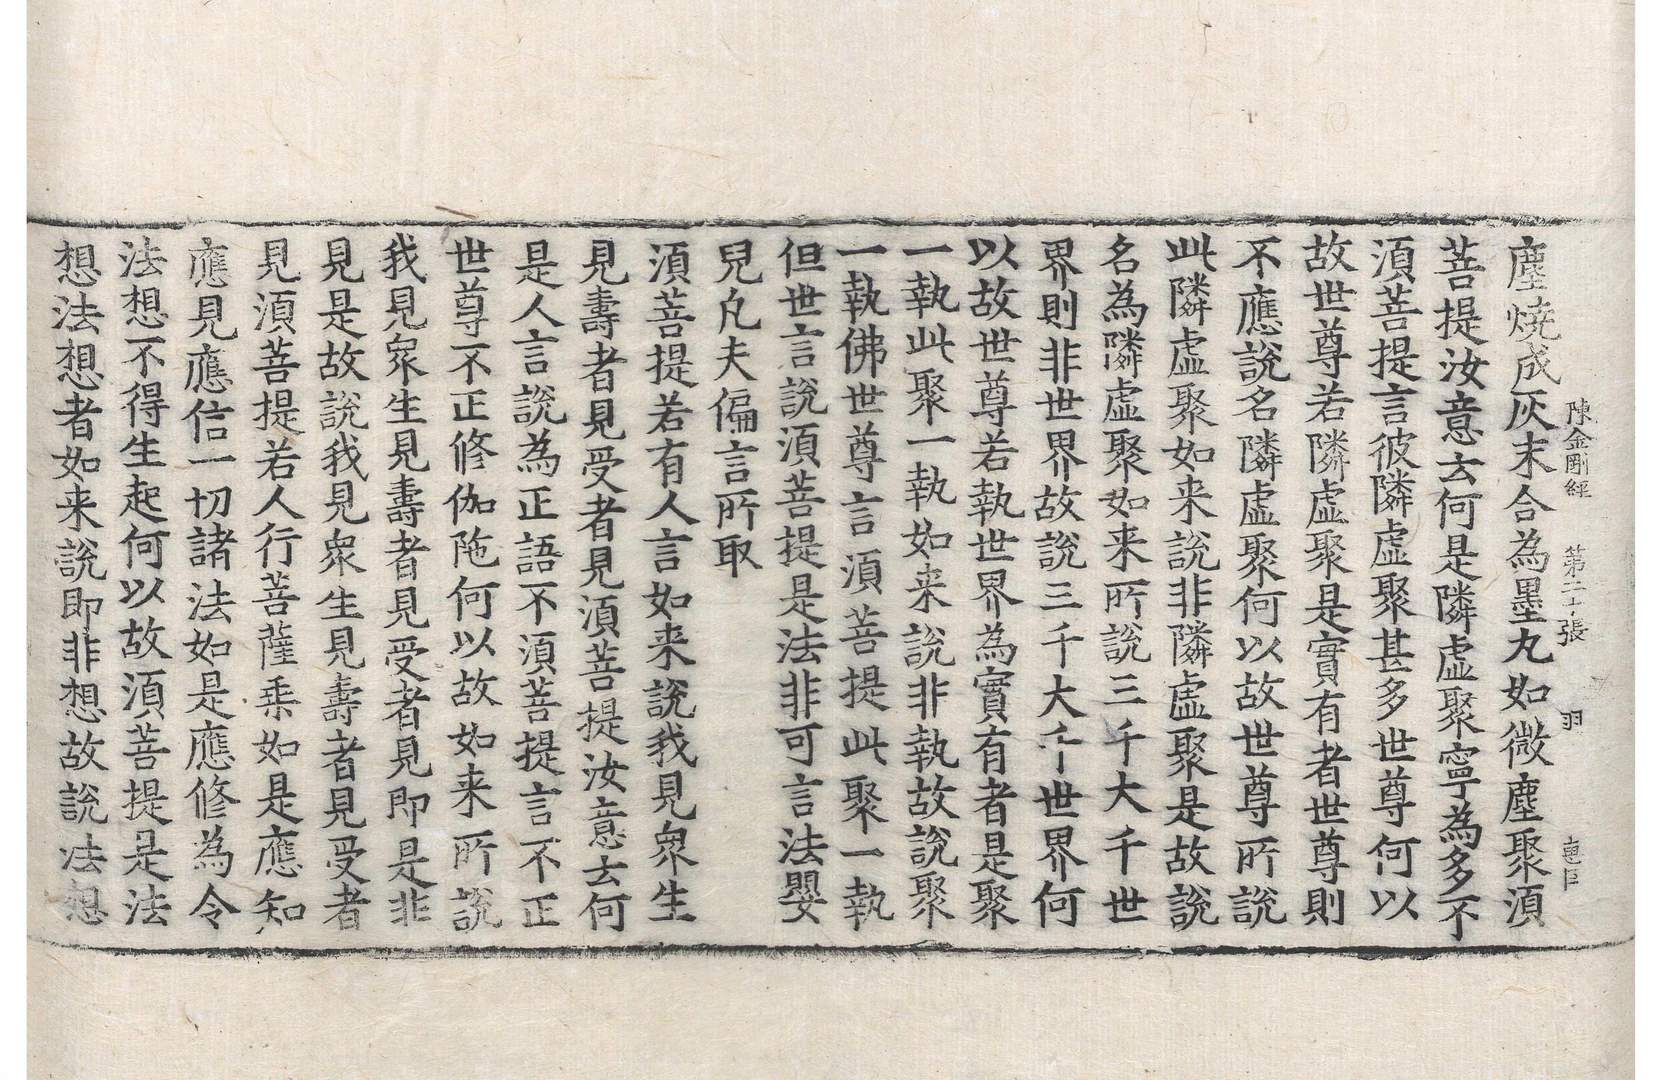 陳金剛經　第二十張　羽
塵燒成灰末合為墨丸如微塵聚湏
菩提汝意云何是隣虛聚寧為多不
湏菩提言彼隣虛聚甚多世尊何以
故世尊若隣虛聚是實有者世尊則
不應說名隣虛聚何以故世尊所說
此隣虛聚如来說非隣虛聚是故說
名為隣虛聚如来所說三千大千世
界則非世界故說三千大千世界何
以故世尊若執世界為實有者是聚
一執此聚一執如来說非執故說聚
一執佛世尊言湏菩提此聚一執
但世言說湏菩提是法非可言法嬰
兒凡夫偏言所取
湏菩提若有人言如来說我見衆生
見壽者見受者見湏菩提汝意云何
是人言說為正語不湏菩提言不正
世尊不正修伽陁何以故如来所說
我見衆生見壽者見受者見即是非
見是故說我見衆生見壽者見受者
見湏菩提若人行菩薩乗如是應知
應見應信一切諸法如是應修為令
法想不得生起何以故湏菩提是法
想法想者如来說即非想故說法想